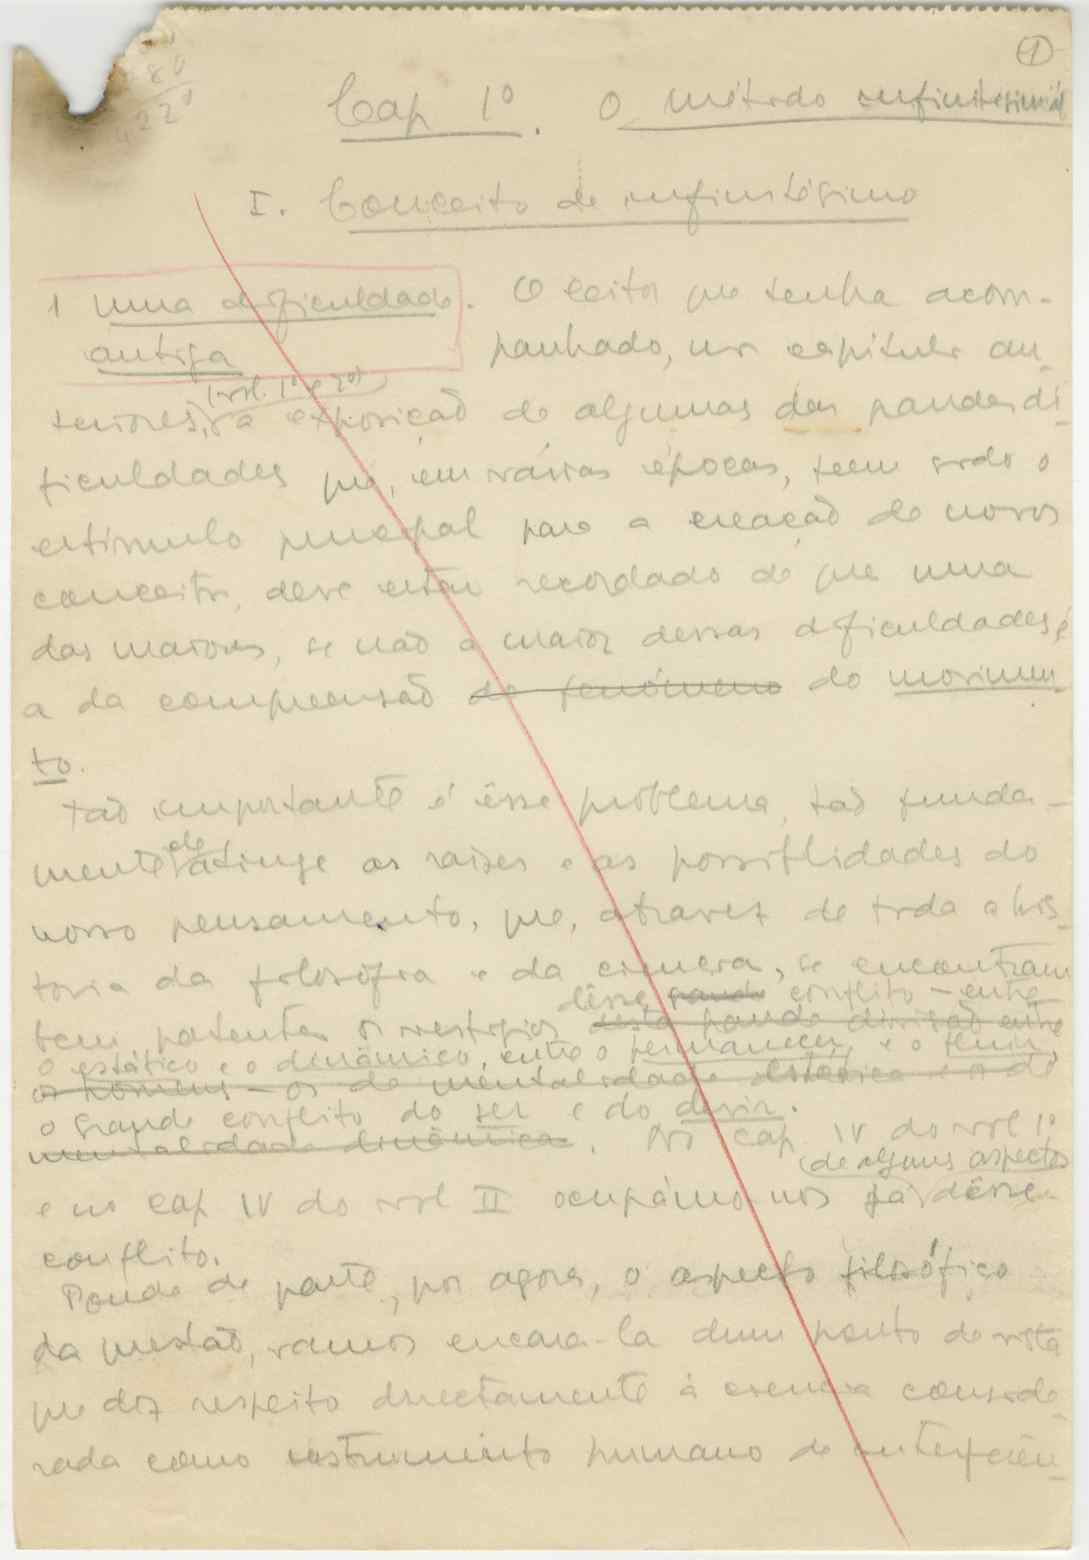 ①
Cap 1º. O método infinitesimal
I. Conceito de infinitésimo
1 Uma dificuldade. O leitor que tenha acom-
antiga panhado, nos capítulos an-
(vol. 1º e 2º)
teriores, a exposição de algumas das grandes di-
ficuldades que, em várias épocas, teem sido o
estimulo principal para a creação de novos
conceitos, deve estar recordado de que uma
das maiores, se não a maior dessas dificuldades, é
a da compreensão do fenómeno do movimen-
to.
Tão importante é êsse problema, tão funda-
ele
mente atinge as raizes e as possibilidades do
nosso pensamento, que, atravez de toda a his-
toria da filosofia e da ciencia, se encontram
dêsse grande conflito – entre
bem patentes os vestigios desta grande divisão entre
o estático e o dinâmico, entre o permanecer e o fluir,
os homens – os de mentalidade estática e os de
o grande conflito do ser e do devir.
mentalidade dinâmica. No cap. IV do vol 1º
(de alguns aspectos
e no cap IV do vol II ocupámo-nos já dêsse
conflito.
Pondo de parte, por agora, o aspecto filosófico
da questão, vamos encara-la dum ponto de vista
que diz respeito directamente à ciencia conside-
rada como instrumento humano de